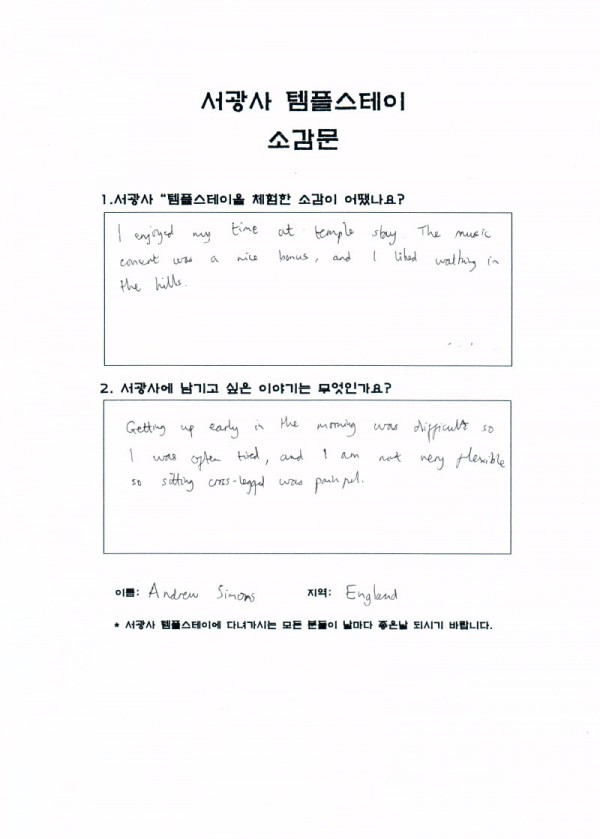 서광사 템플스테이
소감문
1.서광사 “템플스테이을 체험한 소감이 어땠나요?
I enjoyed my time at temple stay The music
concert was a nice bonus, and I liked walking in
the hills.
2. 서광사에 남기고 싶은 이야기는 무엇인가요?
Getting up early in the morning was difficult so
I was often tired, and I am not very flexible
so sitting cross-legged was painful.
이름: Andrew Simons 지역: England
* 서광사 템플스테이에 다녀가시는 모든 분들이 날마다 좋은날 되시기 바랍니다.